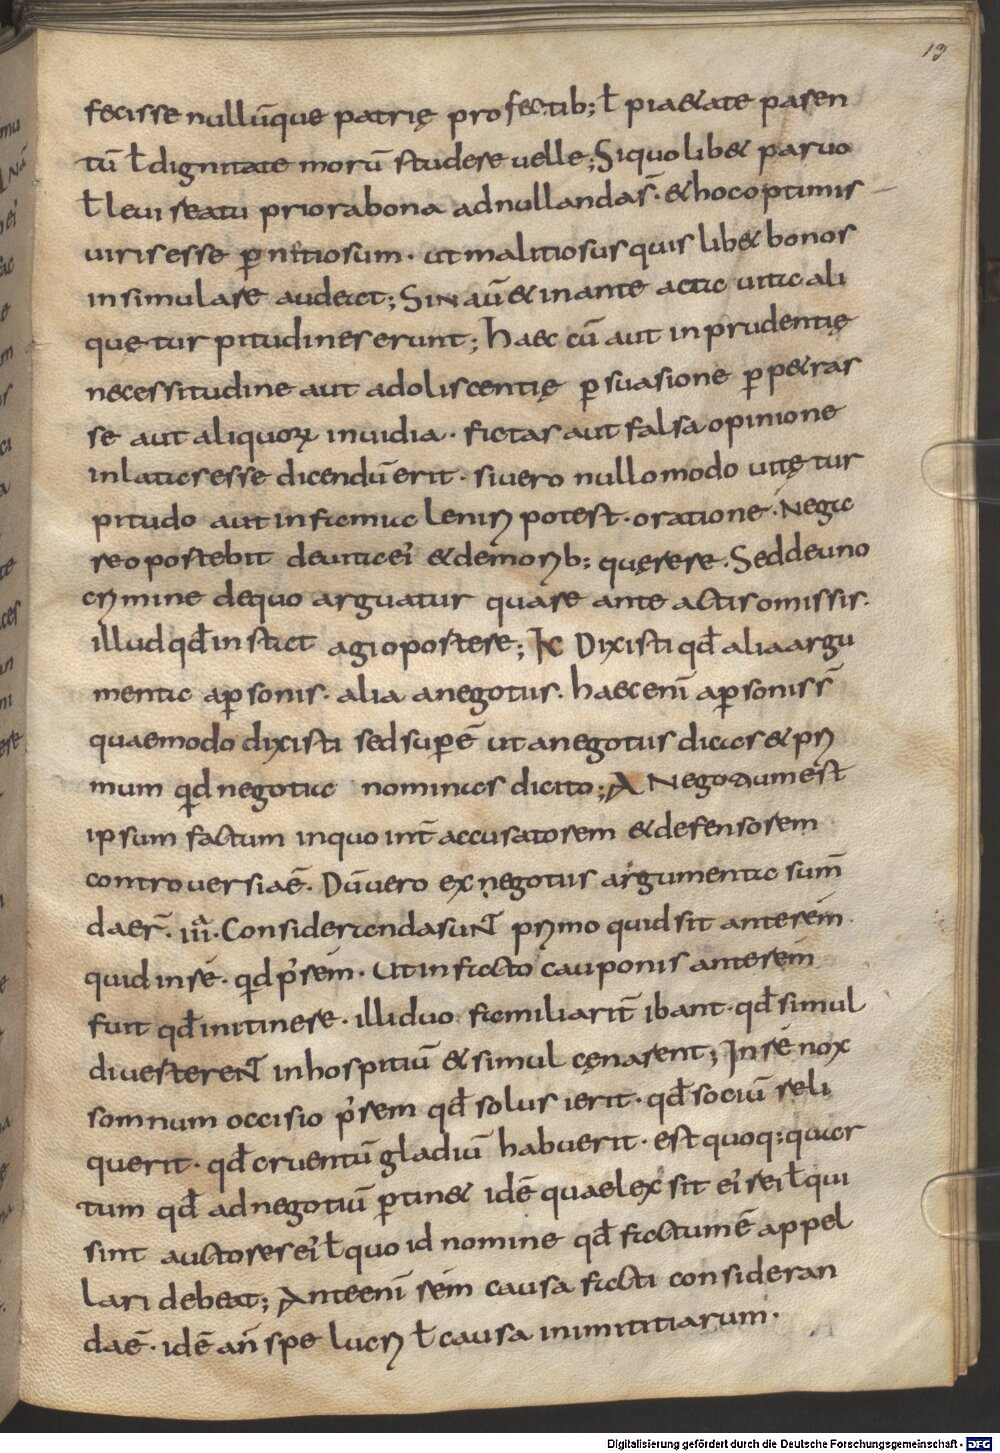 13
fecisse nullūque patrię profectib; ł pia&ate paren
tū ł dignitate morū studere uelle; Si quolib& paruo
ł leui reatu priora bona adnullandas̄· & hoc optimis
uiris esse ꝑnitiosum· ut malitiosus quis lib& bonos
insimulare audeat; Sin aū & in ante acta uita ali
quę turpitudines erunt; haec cū aut inprudentię
necessitudine aut adoliscentię ꝑsuasione ꝑp&ras
se aut aliquoꝝ inuidia· fictas aut falsa opinione
inlatas esse dicendū erit· si uero nullo modo uitę tur
pitudo aut infamia leniri potest· oratione· Nega
re oportebit de uita ei᾽ & de morib; quęrere· Sed de uno
crimine de quo arguatur quare ante actis omissis·
illud qđ instat agi oportere; K Dixisti qđ alia argu
menta a ꝑsonis· alia a negotiis· haec enī a ꝑsonis s̄
quaemodo dixisti sed sup̄ē ut a negotiis dicas & pri
mum qd negotia nominas dicito; A Negotium est
ipsum factum in quo int̄ accusatorem & defensorem
controuersia ē· Dū uero ex negotiis argumenta sum̄
da er̄· iii· Consideranda sunt primo quid sit ante rem
quid in rē· qd p᾽ rem· Ut in facto cauponis ante rem
fuit qđ in itinere· illi duo familiarit̄ ibant· qđ simul
diuerterent in hospitiū & simul cęnarent; In rē nox
somnum occisio p᾽ rem qđ solus ierit· qđ sociū reli
querit· qđ cruentū gladiū habuerit· est quoq; quar
tum qđ ad negotiū ꝑtin& idē quae lex sit ei᾽ rei ł qui
sint auctores ei᾽ ł quo id nomine qđ factum ē appel
lari debeat; Ante enī rem causa facti consideran
da ē· idē an̄ spe lucri ł causa inimititiarum·
Digitalisierung gefördert durch die Deutsche Forschungsgemeinschaft - DFG